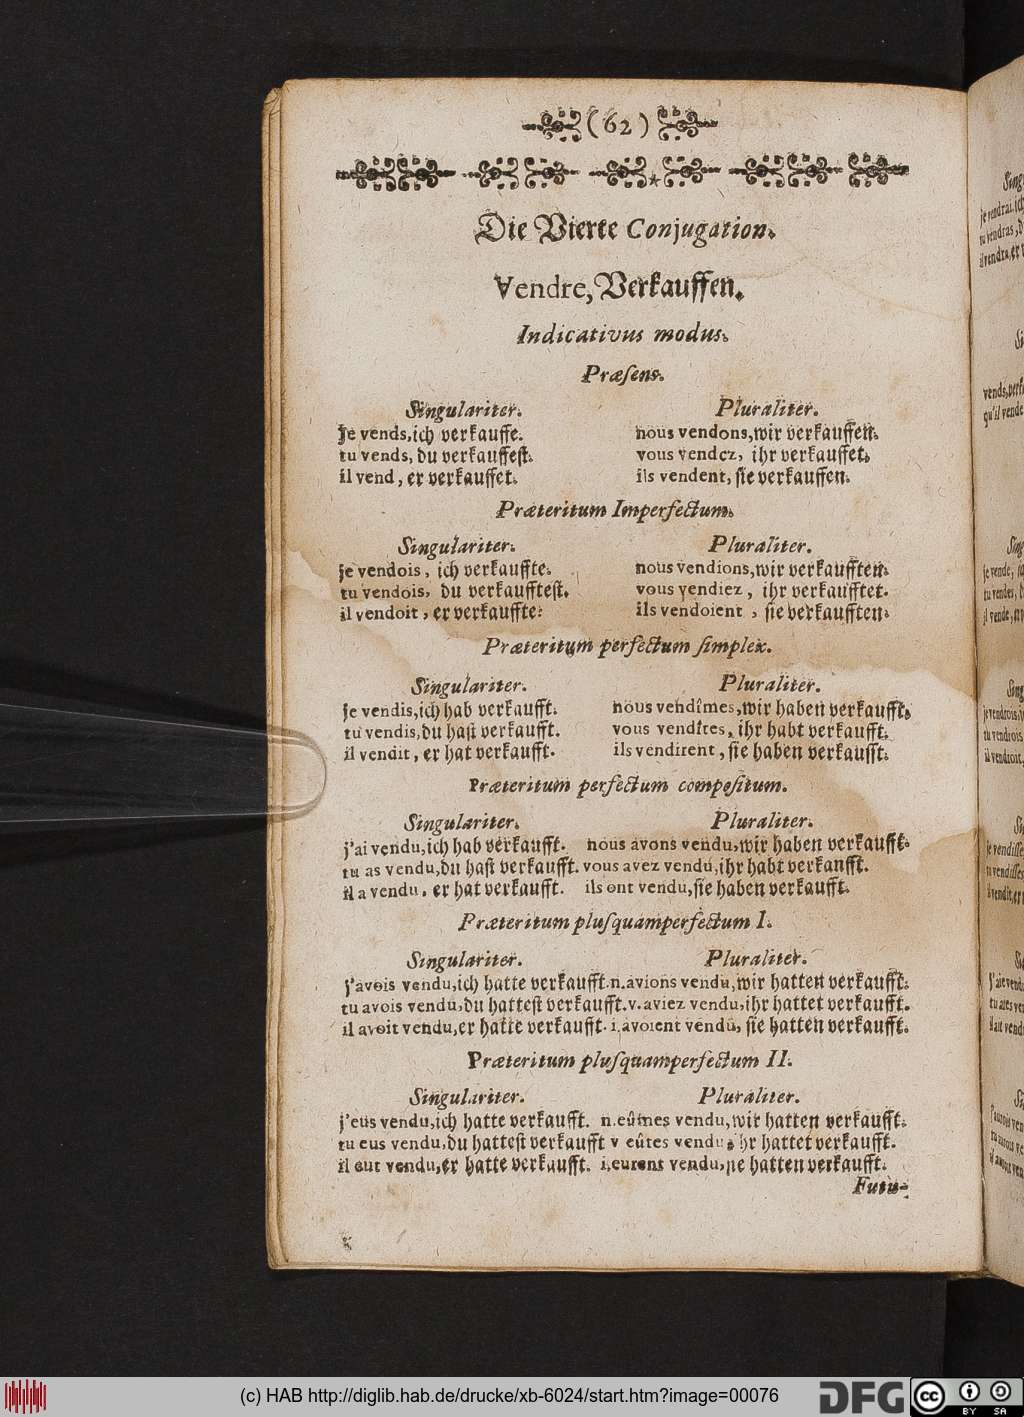 (62)
Die Vierte Conjugation.
Vendre, Verkauffen.
Indicativus modus.
Præſens.
Singulariter. Pluraliter.
Je vends, ich verkauffe. nous vendons, wir verkauffen.
tu vends, du verkauffeſt. vous vendez, ihr verkauffet.
il vend, er verkauffet. ils vendent, ſie verkauffen.
Præteritum Imperfectum.
Singulariter. Pluraliter.
je vendois, ich verkauffte. nous vendions, wir verkaufften.
tu vendois, du verkaufſteſt. vous vendiez, ihr verkaufftet.
il vendoit, er verkauffte. ils vendoient, ſie verkaufften.
Præteritum perfectum ſimplex.
Singulariter. Pluraliter.
je vendis, ich hab verkaufft. nous vendîmes, wir haben verkaufft.
tu vendis, du haſt verkaufft. vous vendîtes, ihr habt verkaufft.
il vendit, er hat verkaufft. ils vendirent, ſie haben verkaufft.
Præteritum perfectum compoſitum.
Singulariter. Pluraliter.
j'ai vendu, ich hab verkaufft. nous avons vendu, wir haben verkaufft.
tu as vendu, du haſt verkaufft. vous avez vendu, ihr habt verkanfft.
il a vendu, er hat verkaufft. ils ont vendu, ſie haben verkaufft.
Præteritum pluſquamperfectum I.
Singulariter. Pluraliter.
j'avois vendu, ich hatte verkaufft. n. avions vendu, wir hatten verkaufft.
tu avois vendu, du hatteſt verkaufft. v. aviez vendu, ihr hattet verkaufft.
il avoit vendu, er hatte verkaufft. i. avoient vendu, ſie hatten verkaufft.
Præteritum pluſquamperfectum II.
Singulariter. Pluraliter.
j'eus vendu, ich hatte verkaufft. n. eûmes vendu, wir hatten verkaufft.
tu eus vendu, du hatteſt verkaufft v eûtes vendu, ihr hattet verkaufft.
il eut vendu, er hatte verkaufft. i. eurent vendu, ſie hatten verkaufft.
Futu-
(c) HAB http://diglib.hab.de/drucke/xb-6024/start.htm?image=00076
DFG
cc
BY SA